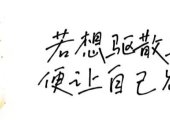 若想驱散
便让自己